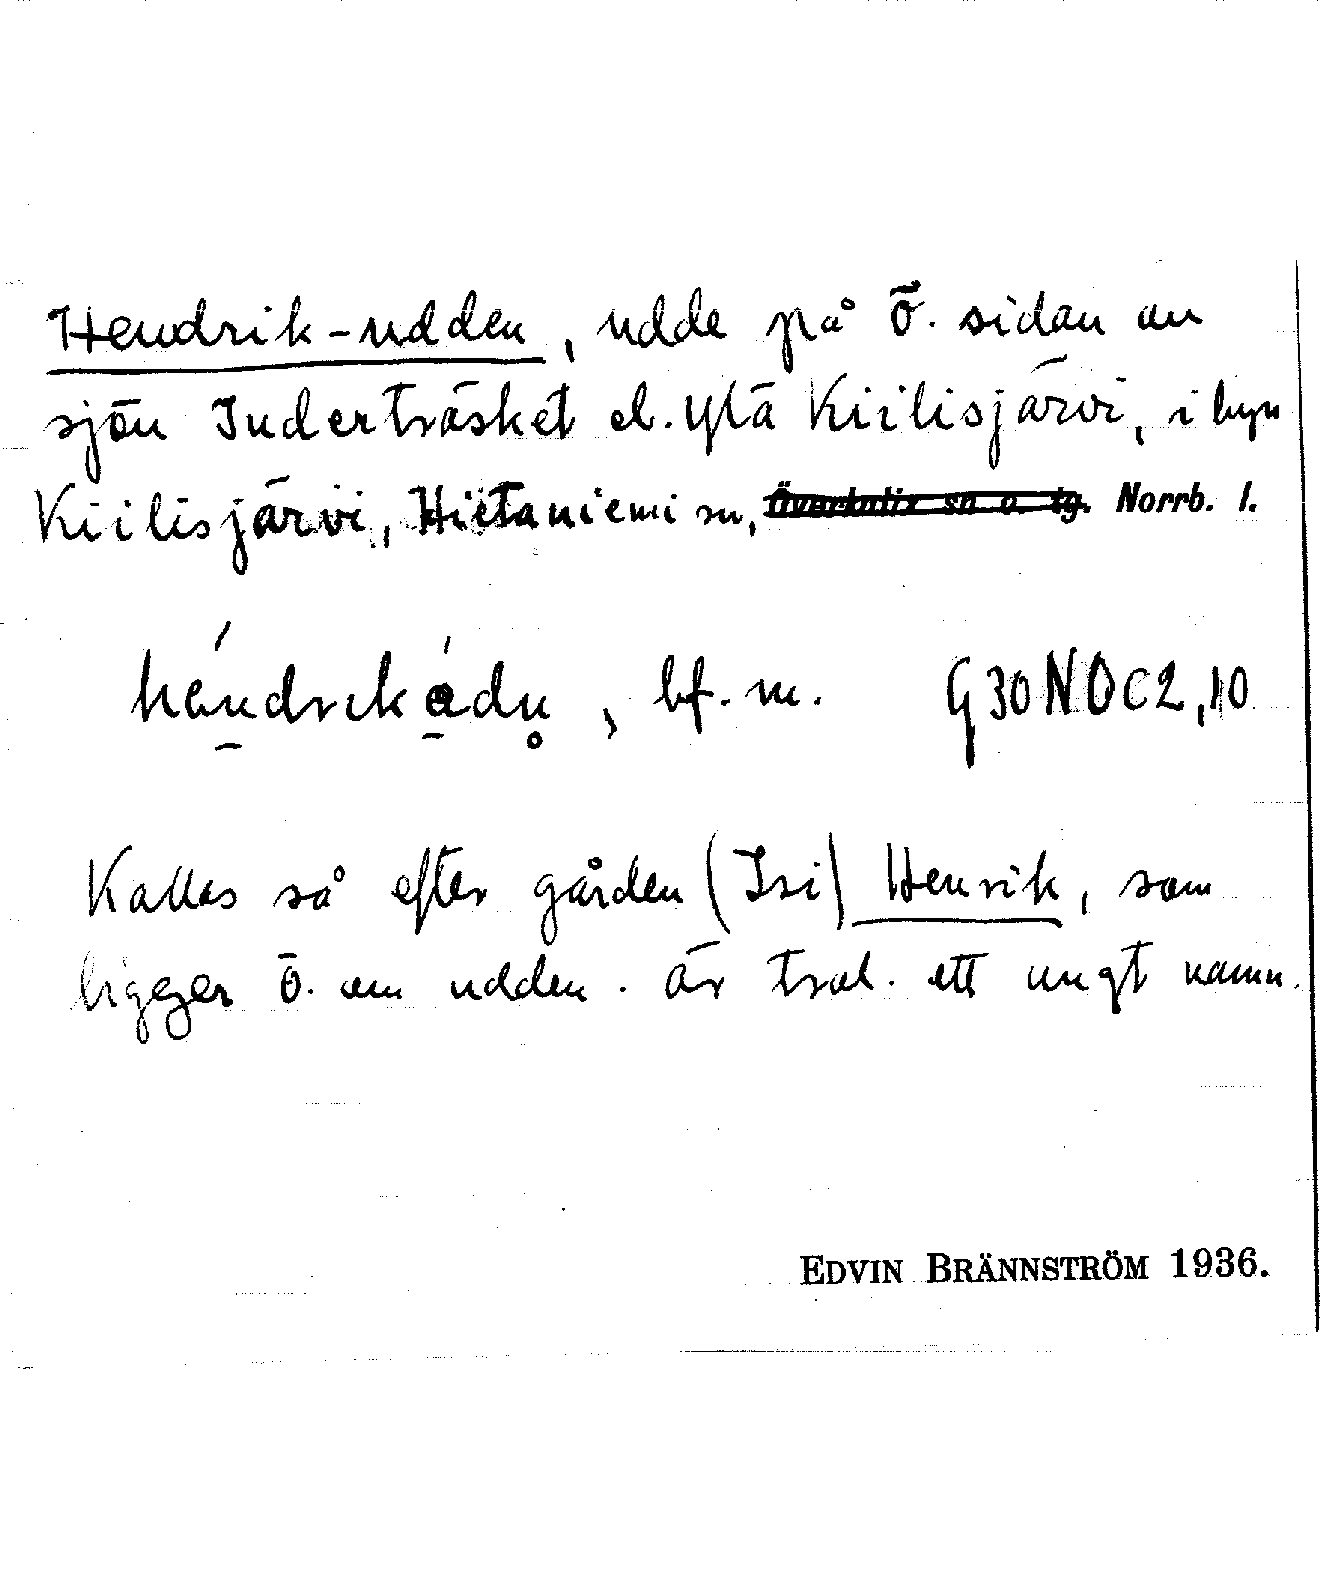 Hendrik-udden, udde på ö. sidan av
sjön Inderträsket el. Ylä Kiilisjärvi, i byn
Kiilisjärvi, Hietaniemi sn, Överkalix sn o. tg. Norrb. l.
bf. m. G30NOC2,10
Kallas så efter gården (Isi) Henrik, som
ligger ö. om udden. är trol. ett ungt namn.
EDVIN BRÄNNSTRÖM 1936.